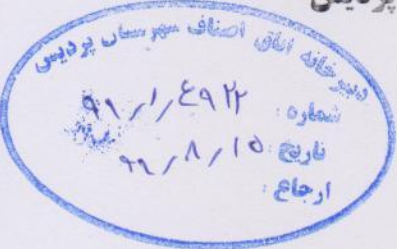 پردیس
دبیرخانه اتاق اصناف شهرستان پردیس
شماره: ۹۹/۱/۴۹۲۲
تاریخ: ۹۹/۸/۱۵
ارجاع: